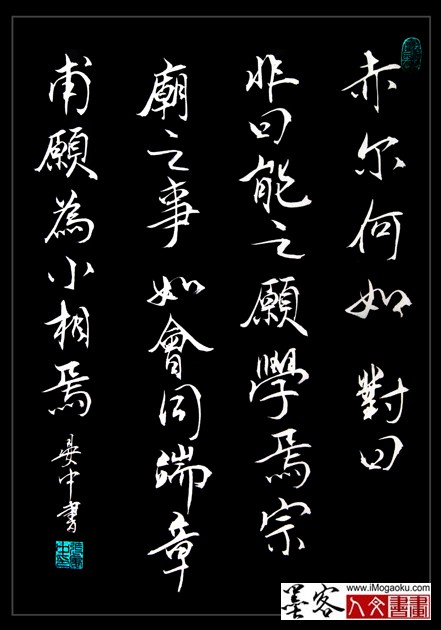 赤尔何如 對曰
非曰能之願學焉宗
廟之事 如會同端章
甫願為小相焉
晏中書
www.iMogaoku.com
墨客 人文書畫